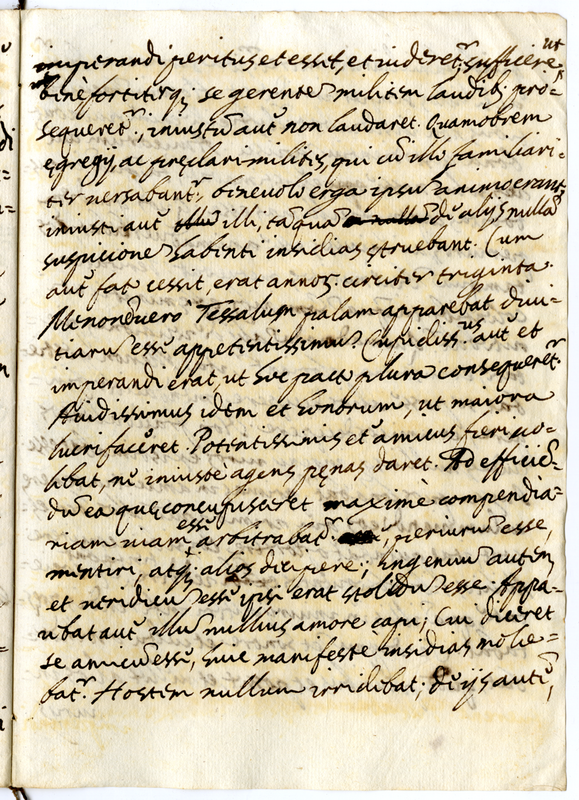 ut
imperandi peritus et esset, et videret.r sufficere
bene fortiterq; se gerente militem laudib; pro=
sequeret.r, iniustũ aut non laudaret. Quamobrem
egregij, ac pręclari milites, qui cũ illo familiari-
ter versabant.r benevolo erga ipsũ animo erant;
iniusti aut illi, tãquã de alijs nullã
suspicionẽ habenti insidias struebant. Cum
aut fat cessit, erat annor. circiter triginta.
Menon verò Tessalum palam apparebat divi-
tiarũ esse appetentissimũ. Cupidiss.us aut et
imperandi erat, ut hoc pacto plura consequeret.r
Avidissimus idem et honorum, ut maiora
lucrifaceret. Potentissimis et amicus fieri vo-
lebat, ne iniustè agens pęnas daret. Ad efficiẽ-
dũ ea quę concupisceret maximè compendia-
riam viam esse arbitrabat.r, periurũ esse,
mentiri, atq; alios decipere; ingenuũ autem,
et veridicũ esse ipse erat stolidũ esse. Appa-
rebat aut illũ nullius amore capi; Cui diceret
se amicũ esse, huic manifestè insidias molie=
bat.r Hostem nullum irridebat; de ijs autẽ,